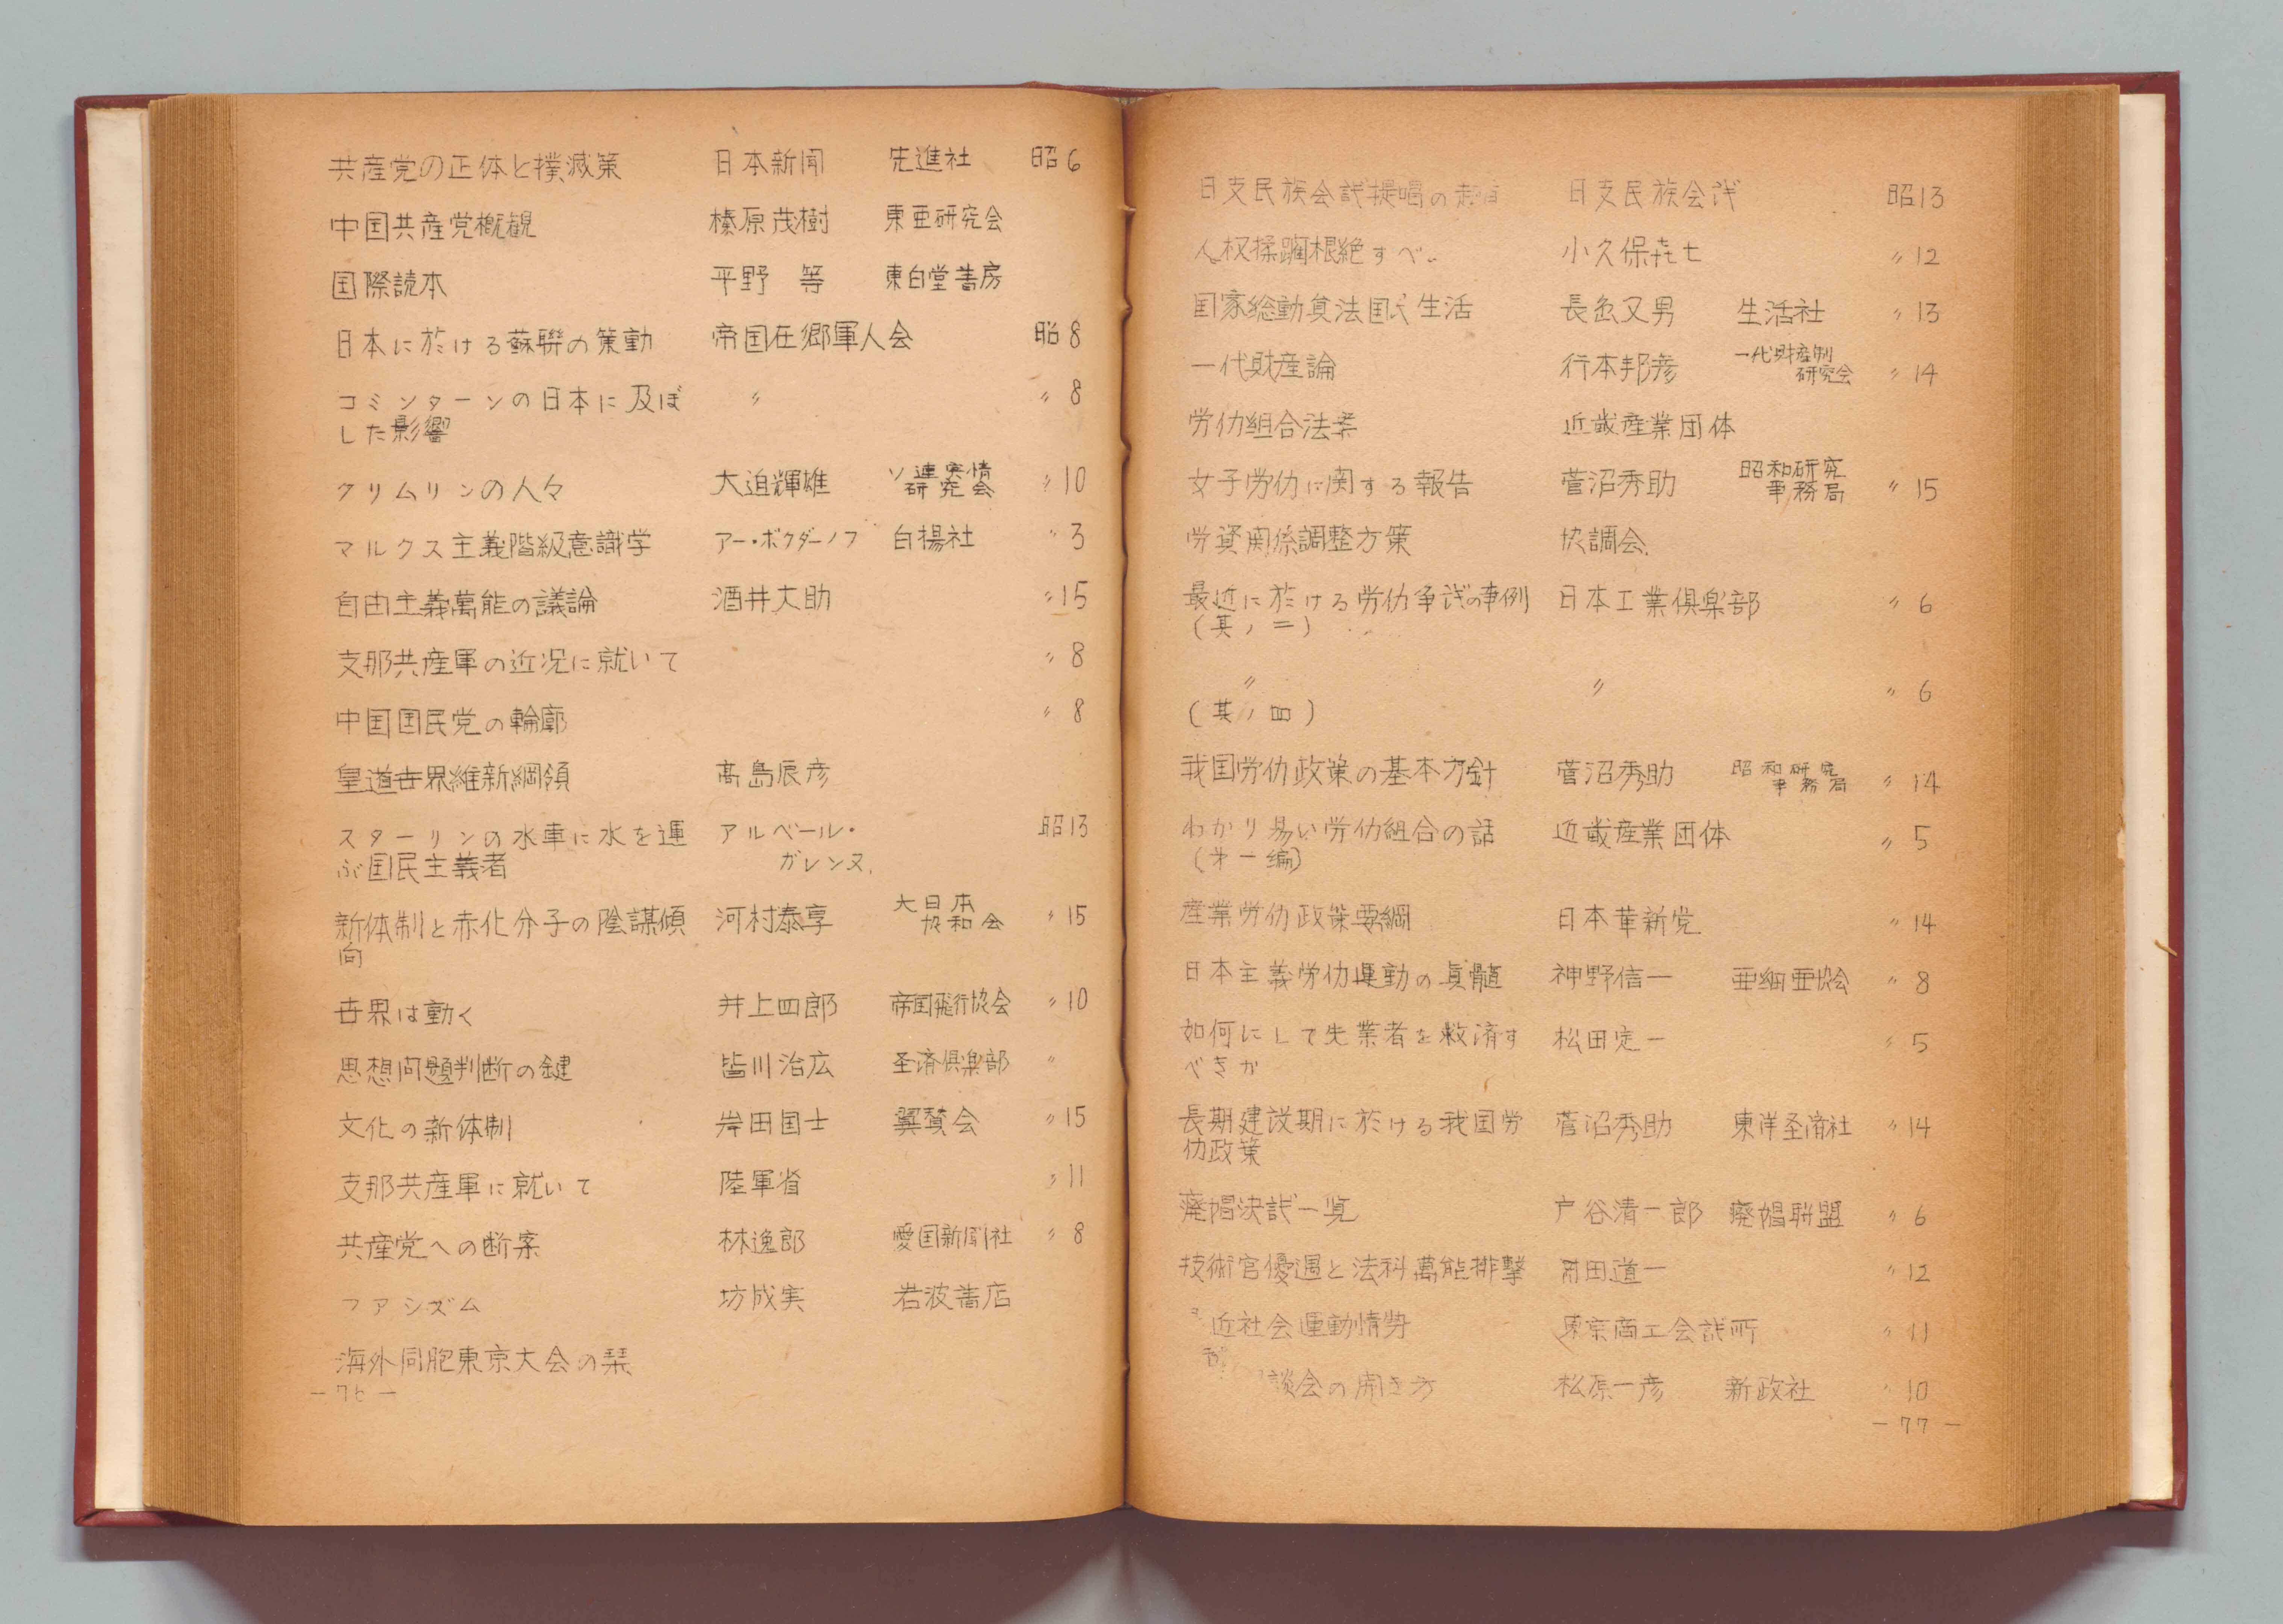 共産党の正体と撲滅策 日本新聞 先進社 昭6
中国共産党概観 榛原茂樹 東亜研究会
国際読本 平野 等 東白堂書房
日本に於ける蘇聯の策動 帝国在郷軍人会 昭8
コミンターンの日本に及ぼ 〃 〃 8
した影響
クリムリンの人々 大迫輝雄 ソ連実情 〃 10
研究会
マルクス主義階級意識学 アー・ボクダーノフ 白揚社 〃 3
自由主義萬能の議論 酒井大助 〃 15
支那共産軍の近況に就いて 〃 8
中国国民党の輪廓 〃 8
皇道世界維新綱領 高島辰彦
スターリンの水車に水を運 アルベール・ 昭13
ぶ国民主義者 ガレンヌ
新体制と赤化分子の陰謀傾 河村泰享 大日本 〃 15
向 協和会
世界は動く 井上四郎 帝国飛行協会 〃 10
思想问題判断の鍵 皆川治広 圣済倶楽部 〃
文化の新体制 岸田国士 翼賛会 〃 15
支那共産軍に就いて 陸軍省 〃 11
共産党への断案 林逸郎 愛国新聞社 〃 8
ファシズム 坊成実 岩波書店
海外同胞東京大会の栞
— 76 —
日支民族会議提唱の 日支民族会議 昭13
人权揉躙根絶すべし 小久保㐂七 〃 12
国家総動員法国民生活 長糸又男 生活社 〃 13
一代財産論 行本邦彦 一代財産制 〃 14
研究会
労仂組合法案 近畿産業団体
女子労仂に関する報告 菅沼秀助 昭和研究 〃 15
事務局
労資関係調整方策 協調会
最近に於ける労仂争議の事例 日本工業倶楽部 〃 6
(其ノ二)
〃 〃 〃 6
(其ノ四)
我国労仂政策の基本方針 菅沼秀助 昭和研究 〃 14
事務局
わかり易い労仂組合の話 近畿産業団体 〃 5
(第一編)
産業労仂政策要綱 日本革新党 〃 14
日本主義労仂運動の真髄 神野信一 亜細亜協会 〃 8
如何にして失業者を救済す 松田定一 〃 5
べきか
長期建設期に於ける我国労 菅沼秀助 東洋圣済社 〃 14
仂政策
廃娼決議一覧 戸谷清一郎 廃娼联盟 〃 6
技術官優遇と法科萬能排撃 田道一 〃 12
近社会運動情勢 東京商工会議所 〃 11
談会の開き方 松原一彦 新政社 〃 10
— 77 —